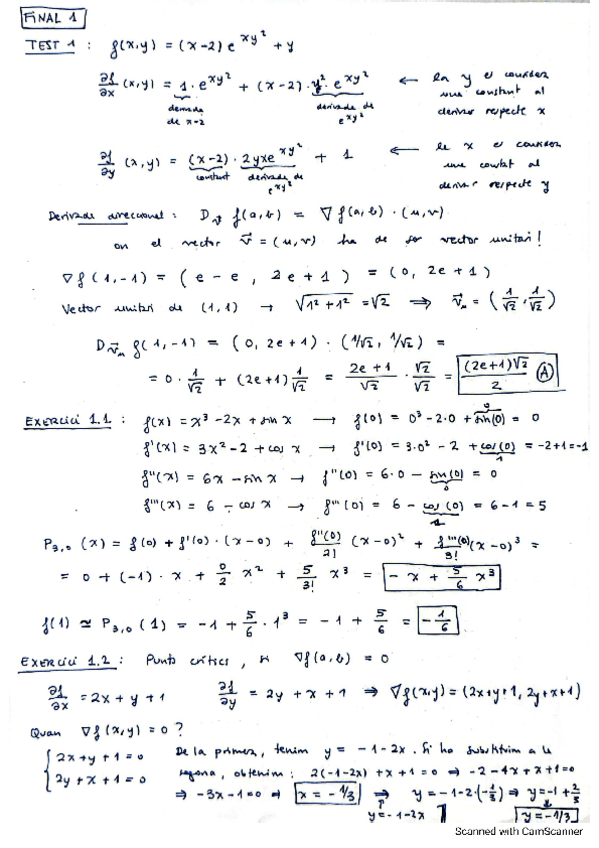 FINAL 1
TEST 1 : f(x,y) = (x-2) e^{xy²} + y
∂f/∂x (x,y) = 1 · e^{xy²} + (x-2) · y² · e^{xy²} ← la y es considera una constant al derivar respecte x
derivada de x-2 derivada de e^{xy²}
∂f/∂y (x,y) = (x-2) · 2yxe^{xy²} + 1 ← la x es considera una constat al derivar respecte y
constant derivada de e^{xy²}
Derivada direccional : D_v f(a,b) = ∇f(a,b) · (u,v)
on el vector v⃗ = (u,v) ha de ser vector unitari!
∇f(1,-1) = (e - e, 2e+1) = (0, 2e+1)
Vector unitari de (1,1) → √(1²+1²) = √2 ⇒ v⃗_u = (1/√2, 1/√2)
D_{v⃗_u} f(1,-1) = (0, 2e+1) · (1/√2, 1/√2) =
= 0 · 1/√2 + (2e+1) 1/√2 = (2e+1)/√2 · √2/√2 = (2e+1)√2/2 A
EXERCICI 1.1 : f(x) = x³ - 2x + sin x → f(0) = 0³ - 2·0 + sin(0) = 0
0
f'(x) = 3x² - 2 + cos x → f'(0) = 3·0² - 2 + cos(0) = -2+1 = -1
1
f''(x) = 6x - sin x → f''(0) = 6·0 - sin(0) = 0
0
f'''(x) = 6 - cos x → f'''(0) = 6 - cos(0) = 6-1 = 5
1
P_{3,0}(x) = f(0) + f'(0) · (x-0) + f''(0)/2! (x-0)² + f'''(0)/3! (x-0)³ =
= 0 + (-1) · x + 0/2 x² + 5/3! x³ = - x + 5/6 x³
f(1) ≃ P_{3,0}(1) = -1 + 5/6 · 1³ = -1 + 5/6 = -1/6
EXERCICI 1.2 : Punts crítics, si ∇f(a,b) = 0
∂f/∂x = 2x + y + 1 ∂f/∂y = 2y + x + 1 ⇒ ∇f(x,y) = (2x+y+1, 2y+x+1)
Quan ∇f(x,y) = 0 ?
{ 2x+y+1=0 De la primera, tenim y = -1-2x. Si ho substituim a la
{ 2y+x+1=0 segona, obtenim : 2(-1-2x) + x + 1 = 0 ⇒ -2 - 4x + x + 1 = 0
⇒ -3x - 1 = 0 ⇒ x = -1/3 ⇒ y = -1-2·(-1/3) ⇒ y = -1 + 2/3
y = -1-2x y = -1/3
Scanned with CamScanner